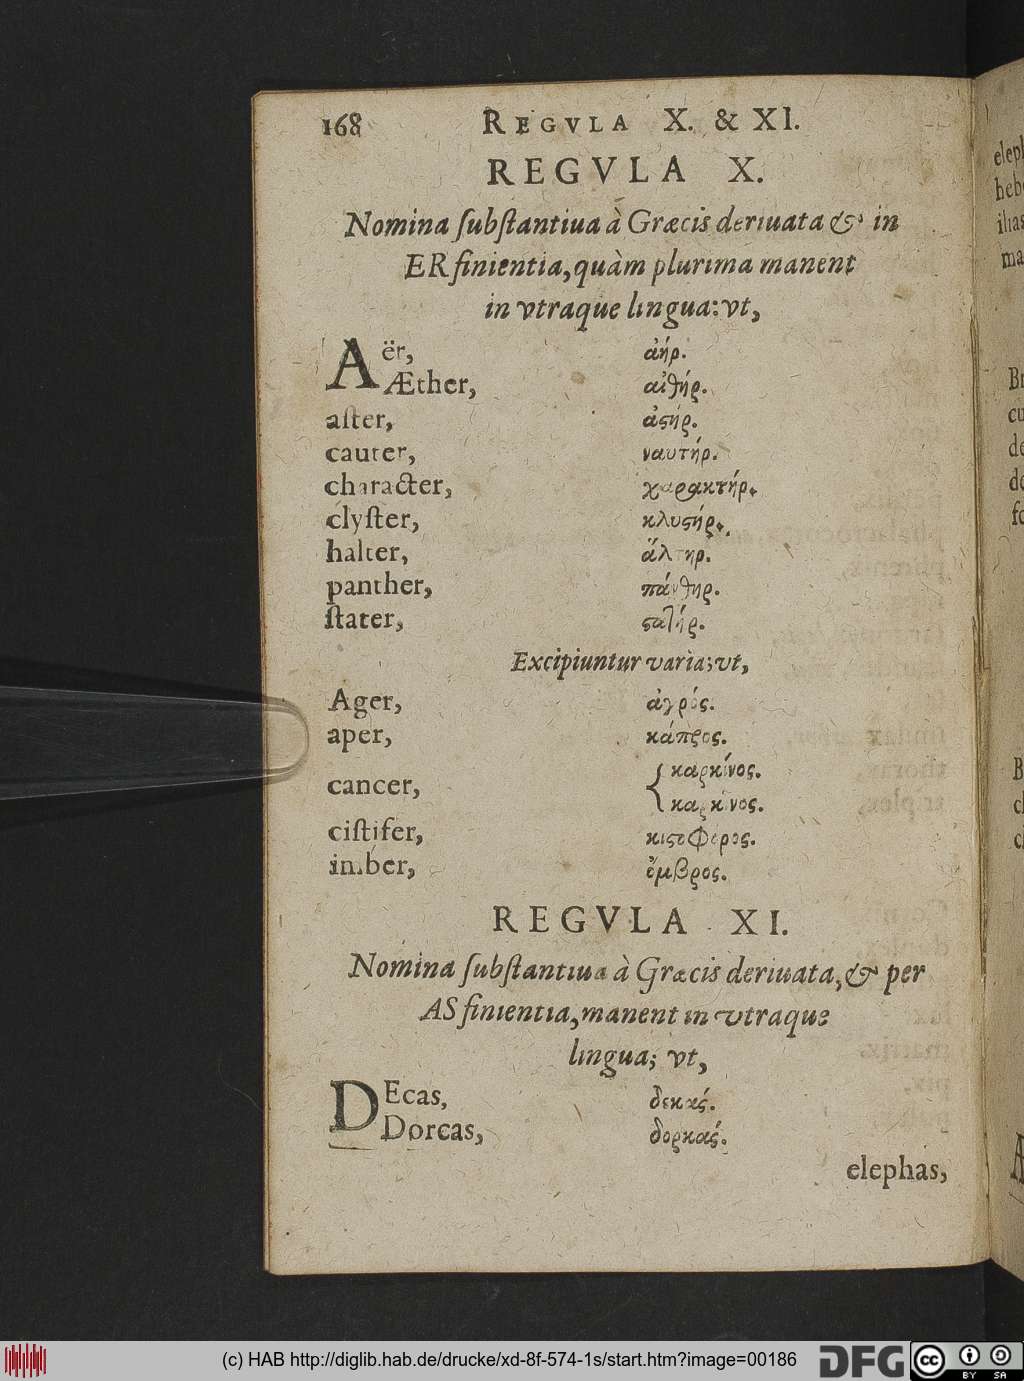 168 REGVLA X. & XI.
REGVLA X.
Nomina ſubſtantiua à Græcis deriuata & in
ER finientia, quàm plurima manent
in vtraque lingua: vt,
Aër, ἀήρ.
Æther, αἰθήρ.
aſter, ἀϛήρ.
cauter, ναυτήρ.
character, χαρακτήρ.
clyſter, κλυϛήρ.
halter, ἅλτηρ.
panther, πάνθηρ.
ſtater, ϛατήρ.
Excipiuntur varia; vt,
Ager, ἀγρός.
aper, κάπρος.
καρκίνος.
cancer,
καρκίνος.
ciſtifer, κιϛοφόρος.
imber, ὄμβρος.
REGVLA XI.
Nomina ſubſtantiua à Græcis deriuata, & per
AS finientia, manent in vtraque
lingua; vt,
DEcas, δεκάς.
Dorcas, δορκάς.
elephas,
ilias
(c) HAB http://diglib.hab.de/drucke/xd-8f-574-1s/start.htm?image=00186 DFG cc BY SA